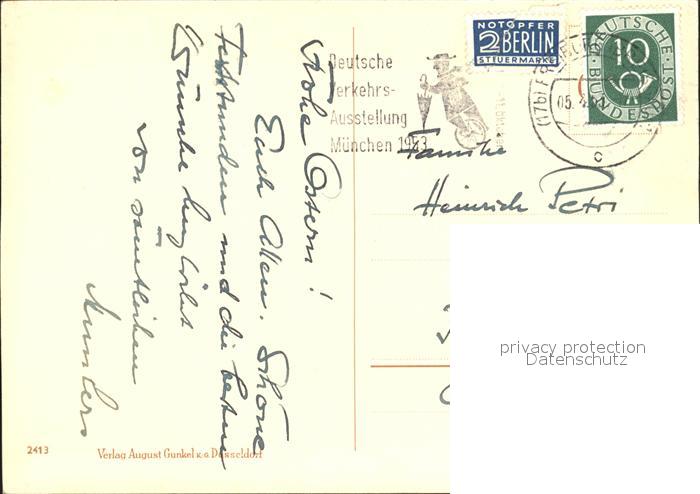 Frohe Ostern!
Euch Allen. Schöne
Feststunden und die besten
Wünsche
von sämtlichen
NOTOPFER
2 BERLIN
STEUERMARKE
DEUTSCHE
BUNDESPOST
10
Deutsche
Verkehrs-
Ausstellung
München 1953
(17b)
05.
c
Familie
Heinrich Petri
privacy protection
Datenschutz
2413
Verlag August Gunkel K.G. Düsseldorf